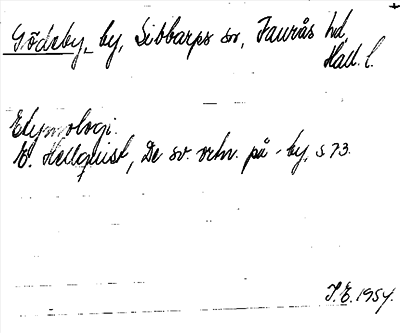 Gödeby, by, Sibbarps sn, Faurås hd,
Hall. l.
Etymologi.
E. Hellquist, De sv. ortn. på -by, s 73.
J.E. 1954.